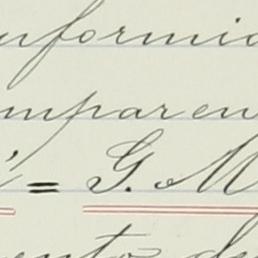 nformid
mparen
= G. M
ento de